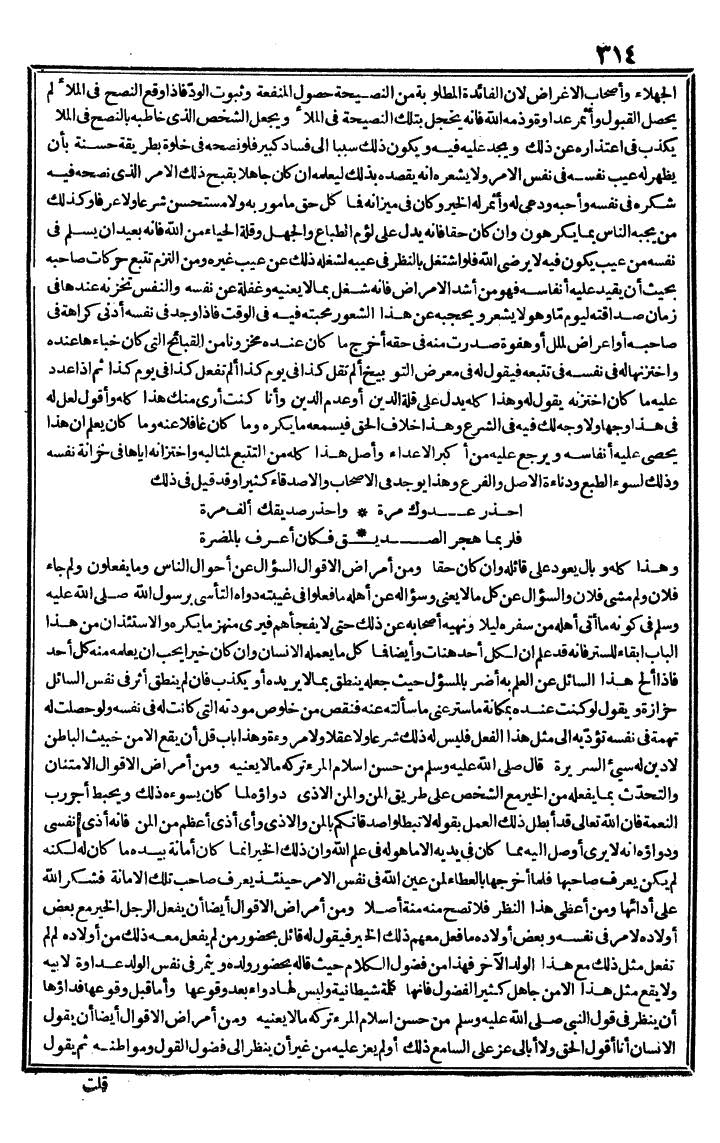 ٣١٤
الجهلاء وأصحاب الاغراض لان الفائدة المطلوبة من النصيحة حصول المنفعة وثبوت الودّ فاذا وقع النصح فى الملأ لم
يحصل القبول وأثمر عداوة وذمه الله فانه يخجل بتلك النصيحة فى الملأ ويجعل الشخص الذى خاطبه بالنصح فى الملا
يكذب فى اعتذاره عن ذلك ويجد عليه فيه ويكون ذلك سببا الى فساد كبير فلو نصحه فى خلوة بطريقة حسنة بأن
يظهر له عيب نفسه فى نفس الامر ولا يشعره انه يقصده بذلك ليعلمه ان كان جاهلا بقبح ذلك الامر الذى نصحه فيه
شكره فى نفسه وأحبه ودعى له وأثمر له الخير وكان فى ميزانه فما كل حق مامور به ولا مستحسن شرعا ولا عرفا وكذلك
من يجبه الناس بما يكرهون وان كان حقا فانه يدل على لؤم الطباع والجهل وقلة الحياء من الله فانه بعيد ان يسلم فى
نفسه من عيب يكون فيه لا يرضى الله فلو اشتغل بالنظر فى عيبه لشغله ذلك عن عيب غيره ومن التزم تتبع حركات صاحبه
بحيث أن يقيد عليه أنفاسه فهو من أشد الامراض فانه شغل بما لا يعنيه وغفلة عن نفسه والنفس تخزنه عندها فى
زمان صداقته ليوم مّا وهو لا يشعر ويحجبه عن هذا الشعور محبته فيه فى الوقت فاذا وجد فى نفسه أدنى كراهة فى
صاحبه أو اعراض لملل أو هفوة صدرت منه فى حقه أخرج ما كان عنده مخزونا من القبائح التى كان خباءها عنده
واختزنها له فى نفسه فى تتبعه فيقول له فى معرض التوبيخ ألم تقل كذا فى يوم كذا ألم تفعل كذا فى يوم كذا ثم اذا عدد
عليه ما كان اختزنه يقول له وهذا كله يدل على قلة الدين أو عدم الدين وأنا كنت أرى منك هذا كله وأقول لعل له
فى هذا وجها ولا وجه لك فيه فى الشرع وهذا خلاف الحق فيسمعه ما يكره وما كان غافلا عنه وما كان يعلم ان هذا
يحصى عليه أنفاسه ويرجع عليه من أكبر الاعداء وأصل هذا كله من التتبع لمثالبه واختزانه اياها فى خزانة نفسه
وذلك لسوء الطبع ودناءة الاصل والفرع وهذا يوجد فى الاصحاب والاصدقاء كثيرا وقد قيل فى ذلك
احذر عدوك مرة * واحذر صديقك ألف مرة
فلربما هجر الصديق * فكان أعرف بالمضرة
وهذا كله وبال يعود على قائله وان كان حقا ومن أمراض الاقوال السؤال عن أحوال الناس وما يفعلون ولم جاء
فلان ولم مشى فلان والسؤال عن كل ما لا يعنى وسؤاله عن أهله ما فعلوا فى غيبته دواه التأسى برسول الله صلى الله عليه
وسلم فى كونه ما أتى أهله من سفره ليلا ونهيه أصحابه عن ذلك حتى لا يفجأهم فيرى منهم ما يكره والاستئذان من هذا
الباب ابقاء للستر فانه قد علم ان لكل أحد هنات وأيضا فما كل ما يعمله الانسان وان كان خيرا يحب ان يعلمه منه كل أحد
فاذا ألح هذا السائل عن العلم به أضر بالمسؤل حيث جعله ينطق بما لا يريده أو يكذب فان لم ينطق أثر فى نفس السائل
حزازة ويقول لو كنت عنده بمكانة ما ستر عنى ما سألته عنه فنقص من خلوص مودته التى كانت له فى نفسه ولو حصلت له
تهمة فى نفسه تؤديه الى مثل هذا الفعل فليس له ذلك شرعا ولا عقلا ولا مروءة وهذا باب قل أن يقع الا من خبيث الباطن
لا دين له سيئ السريرة قال صلى الله عليه وسلم من حسن اسلام المرء تركه ما لا يعنيه ومن أمراض الاقوال الامتنان
والتحدّث بما يفعله من الخير مع الشخص على طريق المن والمن الاذى دواؤه لما كان يسوءه ذلك ويحبط أجور رب
النعمة فان الله تعالى قد أبطل ذلك العمل بقوله لا تبطلوا صدقاتكم بالمن والاذى وأى أذى أعظم من المن فانه أذى نفسى
ودواؤه انه لا يرى أوصل اليه مما كان فى يديه الا ما هو له فى علم الله وان ذلك الخير انما كان أمانة بيده ما كان له لكنه
لم يكن يعرف صاحبها فلما أخرجها بالعطاء لمن عين الله فى نفس الامر حينئذ يعرف صاحب تلك الامانة فشكر الله
على أدائها ومن أعطى هذا النظر فلا تصح منه منة أصلا ومن أمراض الاقوال أيضا أن يفعل الرجل الخير مع بعض
أولاده لامر فى نفسه وبعض أولاده ما فعل معهم ذلك الخير فيقول له قائل بحضور من لم يفعل معه ذلك من أولاده لم لم
تفعل مثل ذلك مع هذا الولد الآخر فهذا من فضول الكلام حيث قاله بحضور ولده ويثمر فى نفس الولد عداوة لابيه
ولا يقع مثل هذا الا من جاهل كثير الفضول فانها كلمة شيطانية وليس لها دواء بعد وقوعها وأما قبل وقوعها فداؤها
أن ينظر فى قول النبى صلى الله عليه وسلم من حسن اسلام المرء تركه ما لا يعنيه ومن أمراض الاقوال أيضا أن يقول
الانسان أنا أقول الحق ولا أبالى عز على السامع ذلك أو لم يعز عليه من غير أن ينظر الى فضول القول ومواطنه ثم يقول
قلت